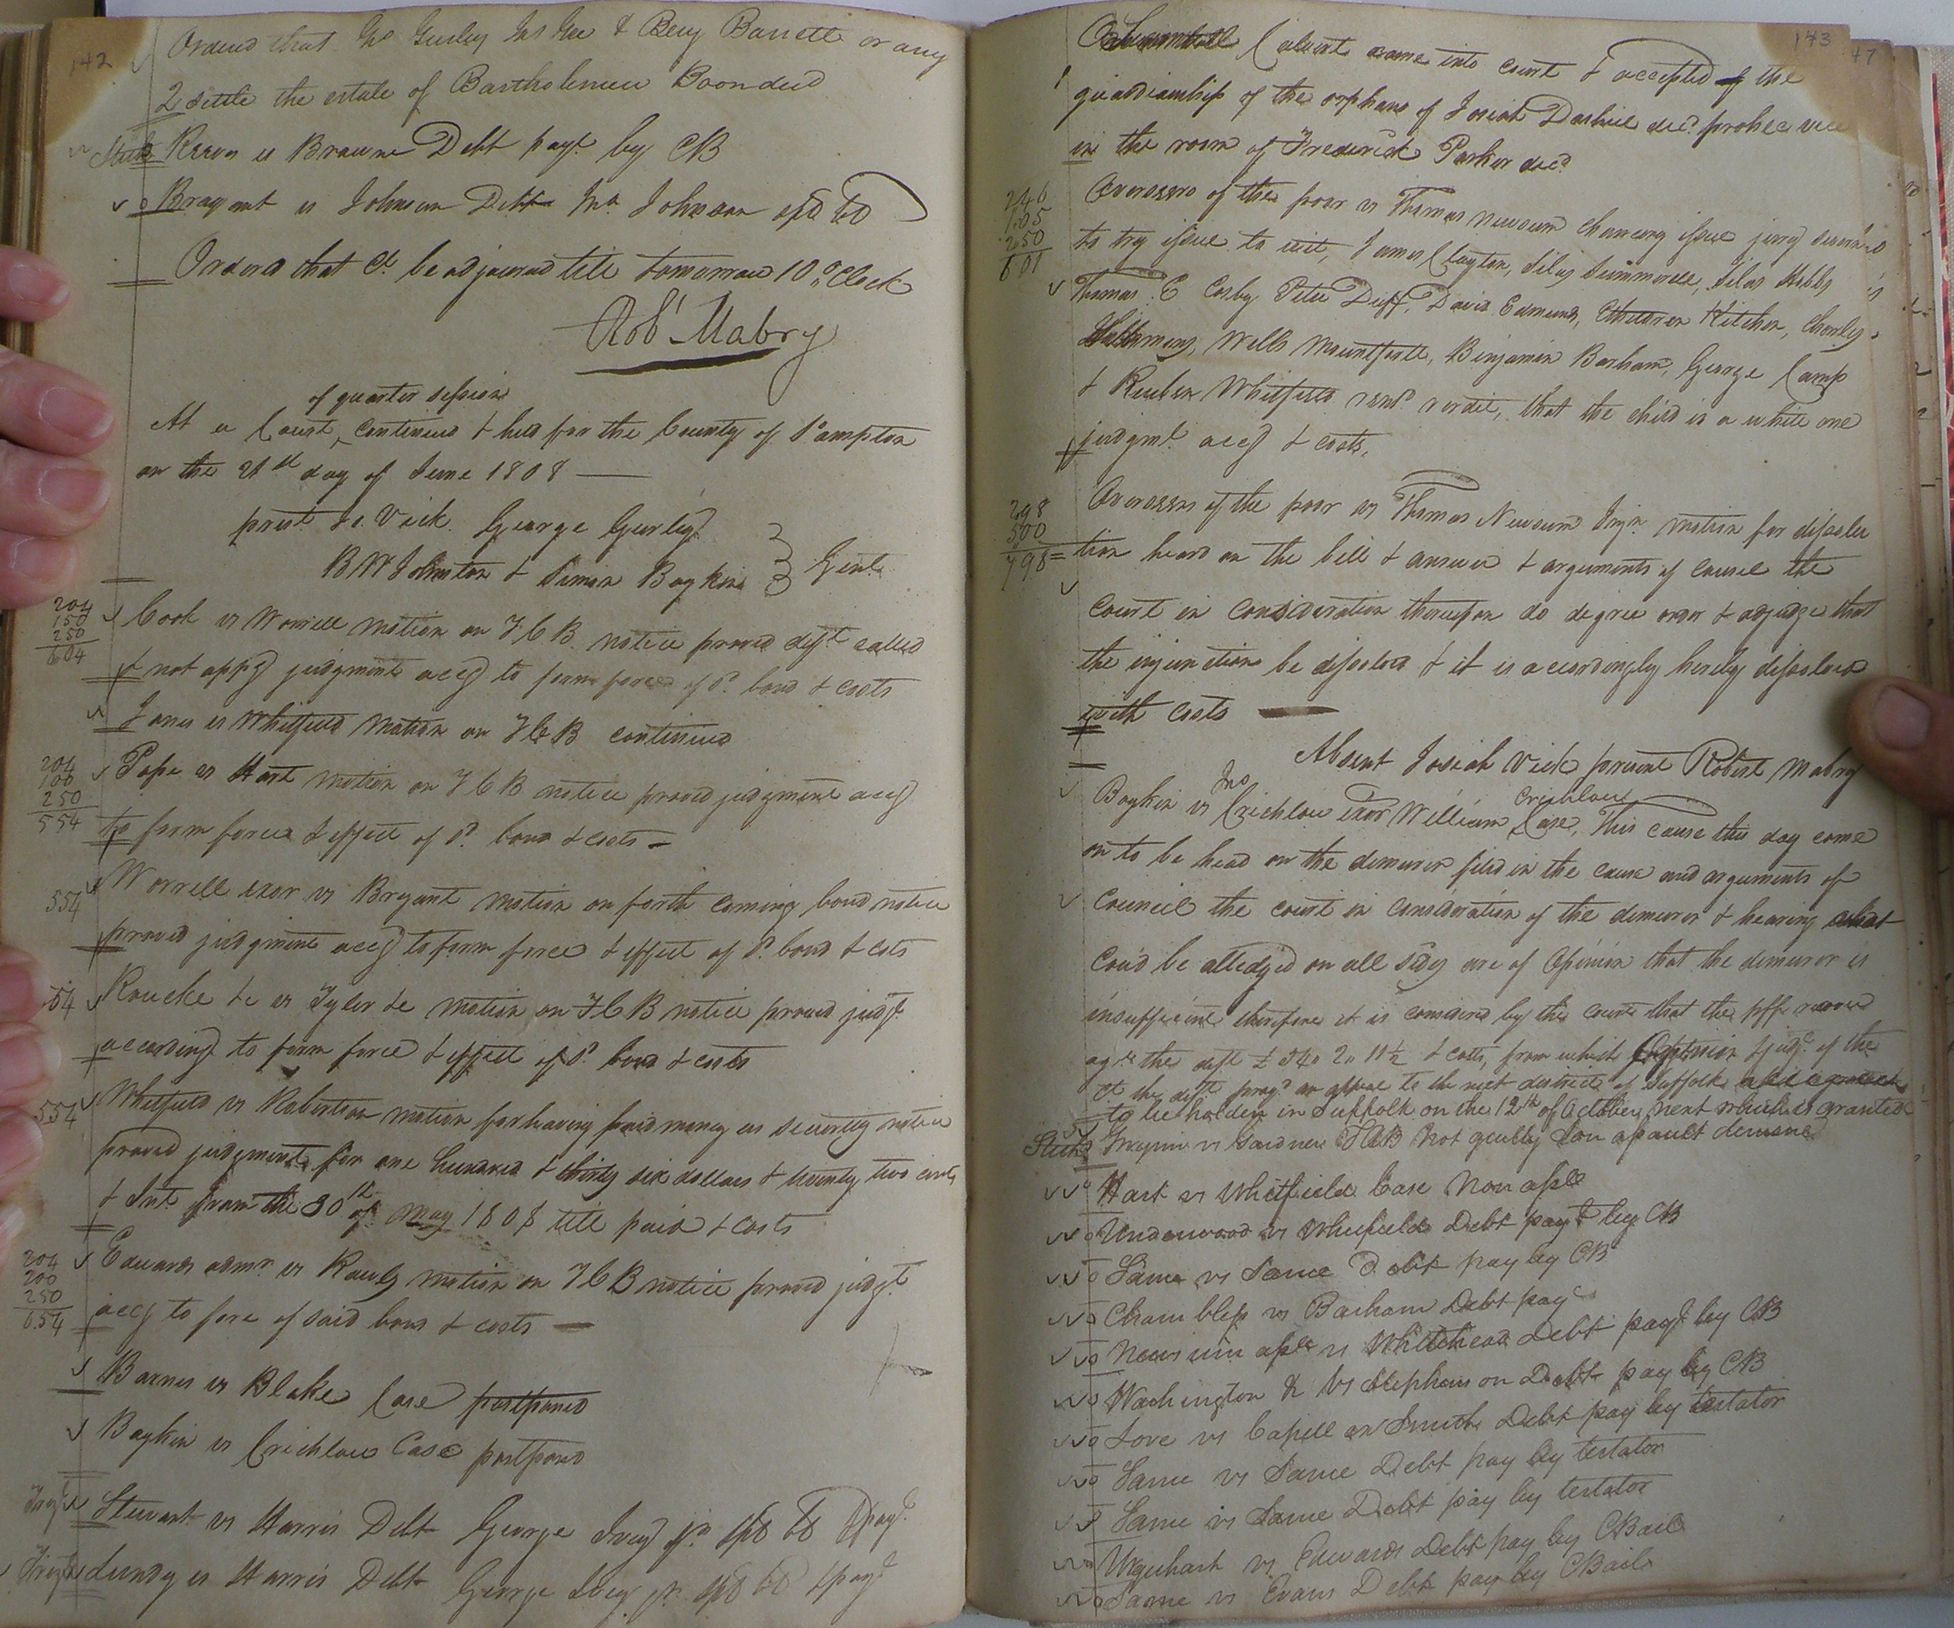 142
Ordered that Jno Gurley Jas Gee & Benj Barrett or any
2 settle the estate of Bartholemew Boon decd
vs Browne Debt payt by CB
Bryant vs Johnson Debt Jno Johnson spb bd
Ordered that Ct. be adjourned till tomorrow 10 oClock
Robt Mabry
of quarter session
At a Court, continued & held for the County of S:ampton
on the 21st day of June 1808
prest Jo. Vick George Gurley
B W Johnston & Simon Boykin } Gent.
204
150
250
604
Cook vs Worrell motion on F C B. notice proved deft called
& not appg judgment accg to form force of sd. bond & costs
Jones vs Whitfield motion on F C B continued
204
100
250
554
Pope vs Hart motion on F C B notice proved judgment accg
to form force & effect of sd. bond & costs
554
Worrell exor vs Bryant motion on forth coming bond notice
proved judgment accg to form force & effect of sd. bond & costs
554
&c vs Tyler &c motion on F C B notice proved judgt.
according to form force & effect of sd. bond & costs
554
Whitfield vs Robertson motion for having paid money as security notice
proved judgment for one hundred & thirty six dollars & twenty two cents
& Int. from the 30th of May 1808 till paid & costs
204
200
250
654
Edwards admr. vs Rawls motion on F C B notice proved judgt
accg to force of said bond & costs
Barnes vs Blake Case postponed
Boykin vs Crichlow Case postpond
Stewart vs Harris Debt George Ivey jr. spb bd & payt.
Lundy vs Harris Debt George Ivey jr. spb bd & payt
143 47
Calvert came into court & accepted of the
guardianship of the orphans of Josiah decd.
in the room of Frederick Parker decd.
246
105
250
601
Overseers of the poor vs Thomas Newsum chancery issue jury sworn
to try issue to wit, James Clayton, Silas Summerell, Silas Hobbs
Thomas E Cosby Peter Duff, David Edmunds, Etheldred Kitchen, Charles
Wells Mountfortt, Benjamin Barham, George Camp
& Reuben Whitfield rend. verdit, that the child is a white one
judgmt. accg & costs.
298
500
798
Overseers of the poor vs Thomas Newsum Injn. motion for dissolu
tion heard on the bill & answer & arguments of councel the
court in consideration thereupon do degree order & adjudge that
the injunction be dissolved & it is accordingly hereby dissolved
with costs
Absent Josiah Vick present Robert Mabry
Boykin vs Jno Crichlow exor William Crichlow Case, This cause this day came
on to be head on the demurer filed in the cause and arguments of
Council the court in consideration of the demurer & hearing what
could be alledged on all sides are of opinion that the demurer is
insufficient therefore it is considered by the court that the plff recover
agst the deft £ 340 2,, 11½ & costs, from which opinion & judgt. of the
Ct the deft. prayd. an appeal to the next district Ct Suffolk
to be holden in Suffolk on the 12th of October next which is granted
vs Gardner TAB not guilty Son assault demesne
Hart vs Whitfield Case Non asst
Underwood vs Whitfield Debt payt by CB
Same vs Same Debt pay by CB
Chambless vs Barham Debt pay
Newsum assee vs Whitehead Debt payt by CB
Washington &c vs Stephenson Debt pay by CB
Love vs Capell exr Smith Debt pay by testator
Same vs Same Debt pay by testator
Same vs Same Debt pay by testator
Urquhart vs Edwards Debt pay by CBail
Same vs Evans Debt pay by CBail